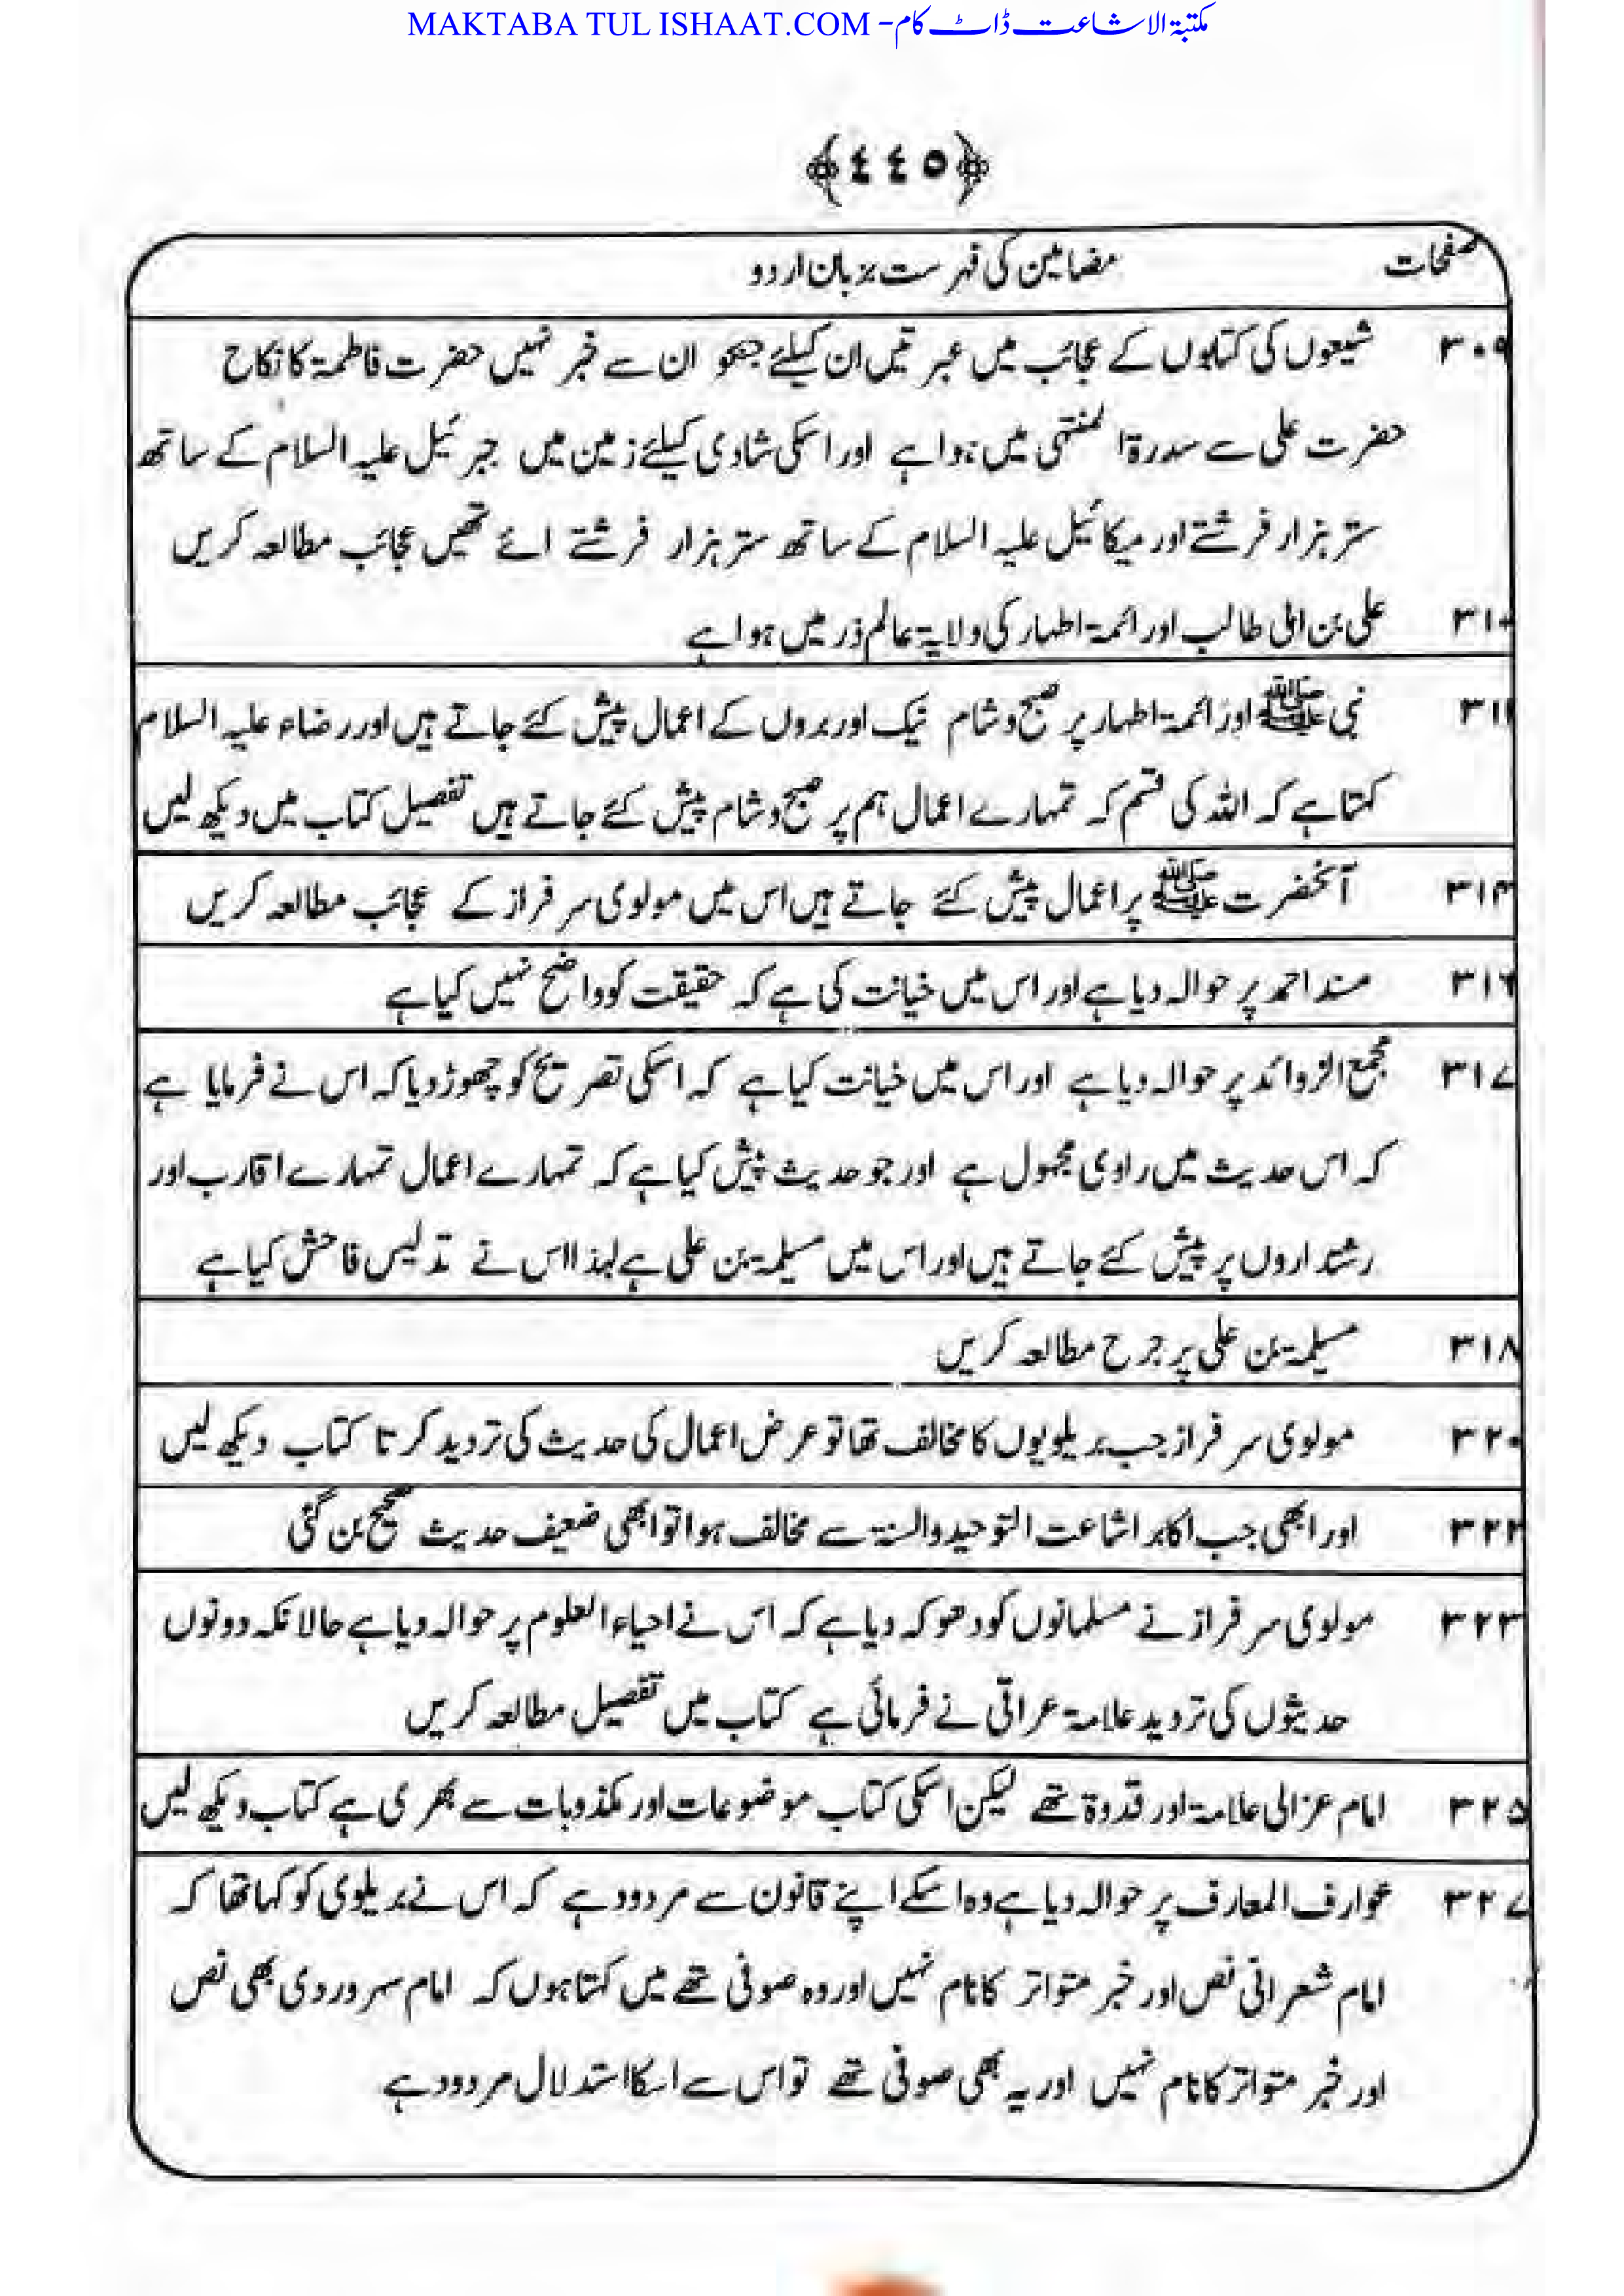 MAKTABA TUL ISHAAT.COM - مکتبۃ الاشاعت ڈاٹ کام
﴿٤٤٥﴾
صفحات مضامین کی فہرست بزبان اردو
۳۰۹ شیعوں کی کتابوں کے عجائب میں عبرتیں ان کیلئے جو ان سے خبر نہیں حضرت فاطمۃ کا نکاح
حضرت علی سے سدرۃ المنتھی میں ہوا ہے اور اسکی شادی کیلئے زمین میں جبرئیل علیہ السلام کے ساتھ
ستر ہزار فرشتے اور میکائیل علیہ السلام کے ساتھ ستر ہزار فرشتے ائے تھیں عجائب مطالعہ کریں
۳۱۰ علی بن ابی طالب اور ائمۃ اطہار کی ولایۃ عالم ذر میں ہوا ہے
۳۱۱ نبی ﷺ اور ائمۃ اطہار پر صبح و شام نیک اور بروں کے اعمال پیش کئے جاتے ہیں اور رضاء علیہ السلام
کہتا ہے کہ اللہ کی قسم کہ تمہارے اعمال ہم پر صبح و شام پیش کئے جاتے ہیں تفصیل کتاب میں دیکھ لیں
۳۱۴ آنحضرت ﷺ پر اعمال پیش کئے جاتے ہیں اس میں مولوی سرفراز کے عجائب مطالعہ کریں
۳۱۶ مسند احمد پر حوالہ دیا ہے اور اس میں خیانت کی ہے کہ حقیقت کو واضح نہیں کیا ہے
۳۱۷ مجمع الزوائد پر حوالہ دیا ہے اور اس میں خیانت کیا ہے کہ اسکی تصریح کو چھوڑ دیا کہ اس نے فرمایا ہے
کہ اس حدیث میں راوی مجہول ہے اور جو حدیث پیش کیا ہے کہ تمہارے اعمال تمہارے اقارب اور
رشتداروں پر پیش کئے جاتے ہیں اور اس میں مسیلمۃ بن علی ہے لہذا اس نے تدلیس فاحش کیا ہے
۳۱۸ مسیلمۃ بن علی پر جرح مطالعہ کریں
۳۲۰ مولوی سرفراز جب بریلویوں کا مخالف تھا تو عرض اعمال کی حدیث کی تردید کرتا کتاب دیکھ لیں
۳۲۲ اور ابھی جب اکابر اشاعت التوحید والسنۃ سے مخالف ہوا تو ابھی ضعیف حدیث صحیح بن گئی
۳۲۳ مولوی سرفراز نے مسلمانوں کو دھوکہ دیا ہے کہ اس نے احیاء العلوم پر حوالہ دیا ہے حالانکہ دونوں
حدیثوں کی تردید علامۃ عراقی نے فرمائی ہے کتاب میں تفصیل مطالعہ کریں
۳۲۵ امام غزالی علامۃ اور قدوۃ تھے لیکن اسکی کتاب موضوعات اور مکذوبات سے بھری ہے کتاب دیکھ لیں
۳۲۷ عوارف المعارف پر حوالہ دیا ہے وہ اسکے اپنے قانون سے مردود ہے کہ اس نے بریلوی کو کہا تھا کہ
امام شعرانی نص اور خبر متواتر کا نام نہیں اور وہ صوفی تھے میں کہتا ہوں کہ امام سہروردی بھی نص
اور خبر متواتر کا نام نہیں اور یہ بھی صوفی تھے تو اس سے اسکا استدلال مردود ہے